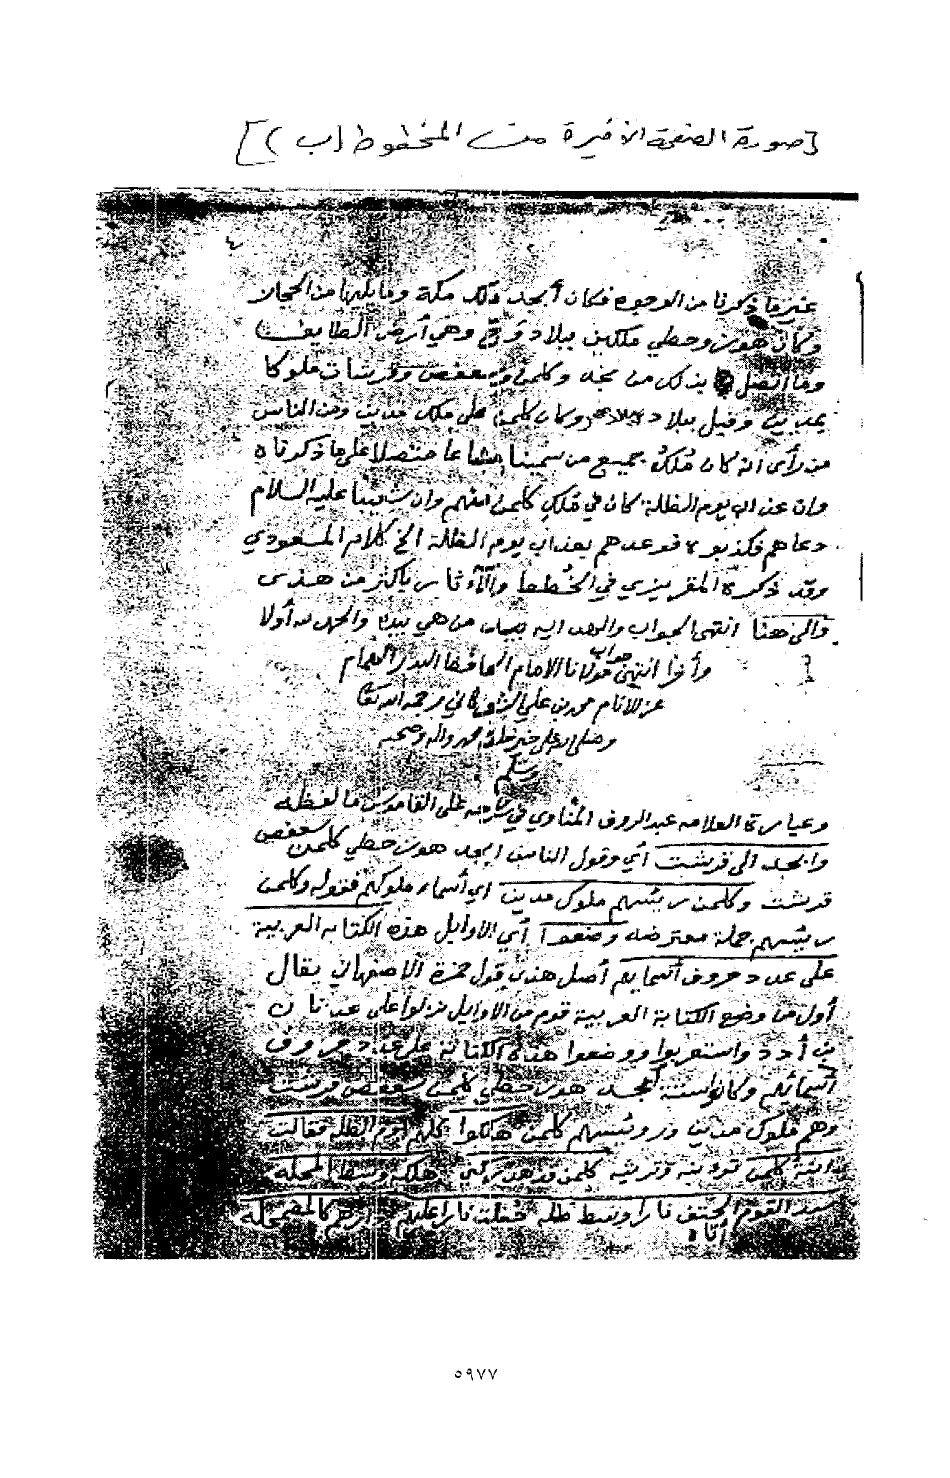 [صورة الصفحة الأخيرة من المخطوط (ب)]
غير ما ذكرنا من الوجوه فكان أبجد ملك مكة وما يليها من الحجاز
وكان هوز وحطي ملكين ببلاد وج وهي أرض الطايف
وما اتصل بذلك من نجد وكلمن وسعفص وقرشات ملوكا
بمدين وقيل ببلاد وكان كلمن على ملك مدين ومن الناس
من رأى انه كان ملك جميع من سمينا مشاعا متصلا على ما ذكرناه
وان عذاب يوم الظلة كان في ملك كلمن منهم وان شعيبا عليه السلام
دعاهم فكذبوه فوعدهم بعذاب يوم الظلة الخ كلام المسعودي
وقد ذكره المقريزي في الخطط والآثار بأكثر من هذا
والى هنا انتهى الجواب والهداية بيد من هي بيده والحمد لله أولا
وآخرا انتهى جواب مولانا الامام الحافظ البدر الهمام
عز الانام محمد بن علي الشوكاني رحمه الله تعالى
وصلى الله على خير خلقه محمد واله وصحبه
وسلم
وعبارة العلامه عبد الروف المناوي في شرحه على القاموس ما لفظه
وابجد الى قرشت أي وقول الناس ابجد هوز حطي كلمن سعفص
قرشت وكلمن رييسهم ملوك مدين اي أسماء ملوكهم فقوله وكلمن
رييسهم جملة معترضه وضعوا أي الاوايل هذه الكتابه العربية
على عدد حروف أسمايهم أصل هذا قول حمزة الاصفهاني يقال
أول من وضع الكتابة العربية قوم من الاوايل نزلوا على عدنان
بن أدد واستعربوا ووضعوا هذه الكتابة على عدد حروف
أسمائهم وكانوا ستة أبجد هوز حطي كلمن سعفص قرشت
وهم ملوك مدين ورييسهم كلمن هلكوا كلهم يوم الظلة فقالت
ابنة كلمن كلمن هدم ركني هلكه وسط المحله
سيد القوم الحتف نارا وسط ظله جعلت نارا عليهم دارهم كالمضمحله
أتاه
٥٩٧٧